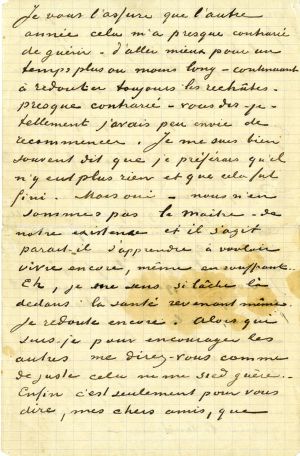 Je vous l'assure que l'autre
année cela m'a presque contrarié
de guérir - d'aller mieux pour un
temps plus ou moins long - continuant
à redouter toujours les rechûtes -
presque contrarié - vous dis-je -
tellement j'avais peu envie de
recommencer. Je me suis bien
souvent dit que je préférais qu'il
n'y eut plus rien et que cela fut
fini. Mais oui - nous n'en
sommes pas le maitre - de
notre existence et il s'agit
parait-il d'apprendre à vouloir
vivre encore, même en souffrant.
Eh, je me sens si lâche là
dedans: la santé revenant même,
je redoute encore. Alors qui
suis-je pour encourager les
autres me direz-vous comme
de juste cela ne me sied guère.
Enfin c'est seulement pour vous
dire, mes chers amis, que